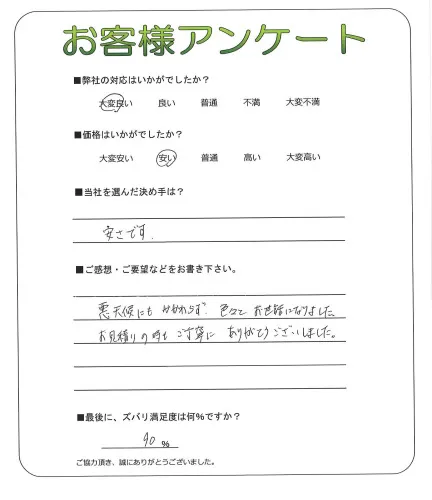 お客様アンケート
■弊社の対応はいかがでしたか?
大変良い 良い 普通 不満 大変不満
■価格はいかがでしたか?
大変安い 安い 普通 高い 大変高い
■当社を選んだ決め手は?
安さです.
■ご感想・ご要望などをお書き下さい。
悪天候にもかかわらず. 色々と お世話になりました.
お見積りの時も ご丁寧に ありがとうございました。
■最後に、ズバリ満足度は何%ですか?
90 %
ご協力頂き、誠にありがとうございました。